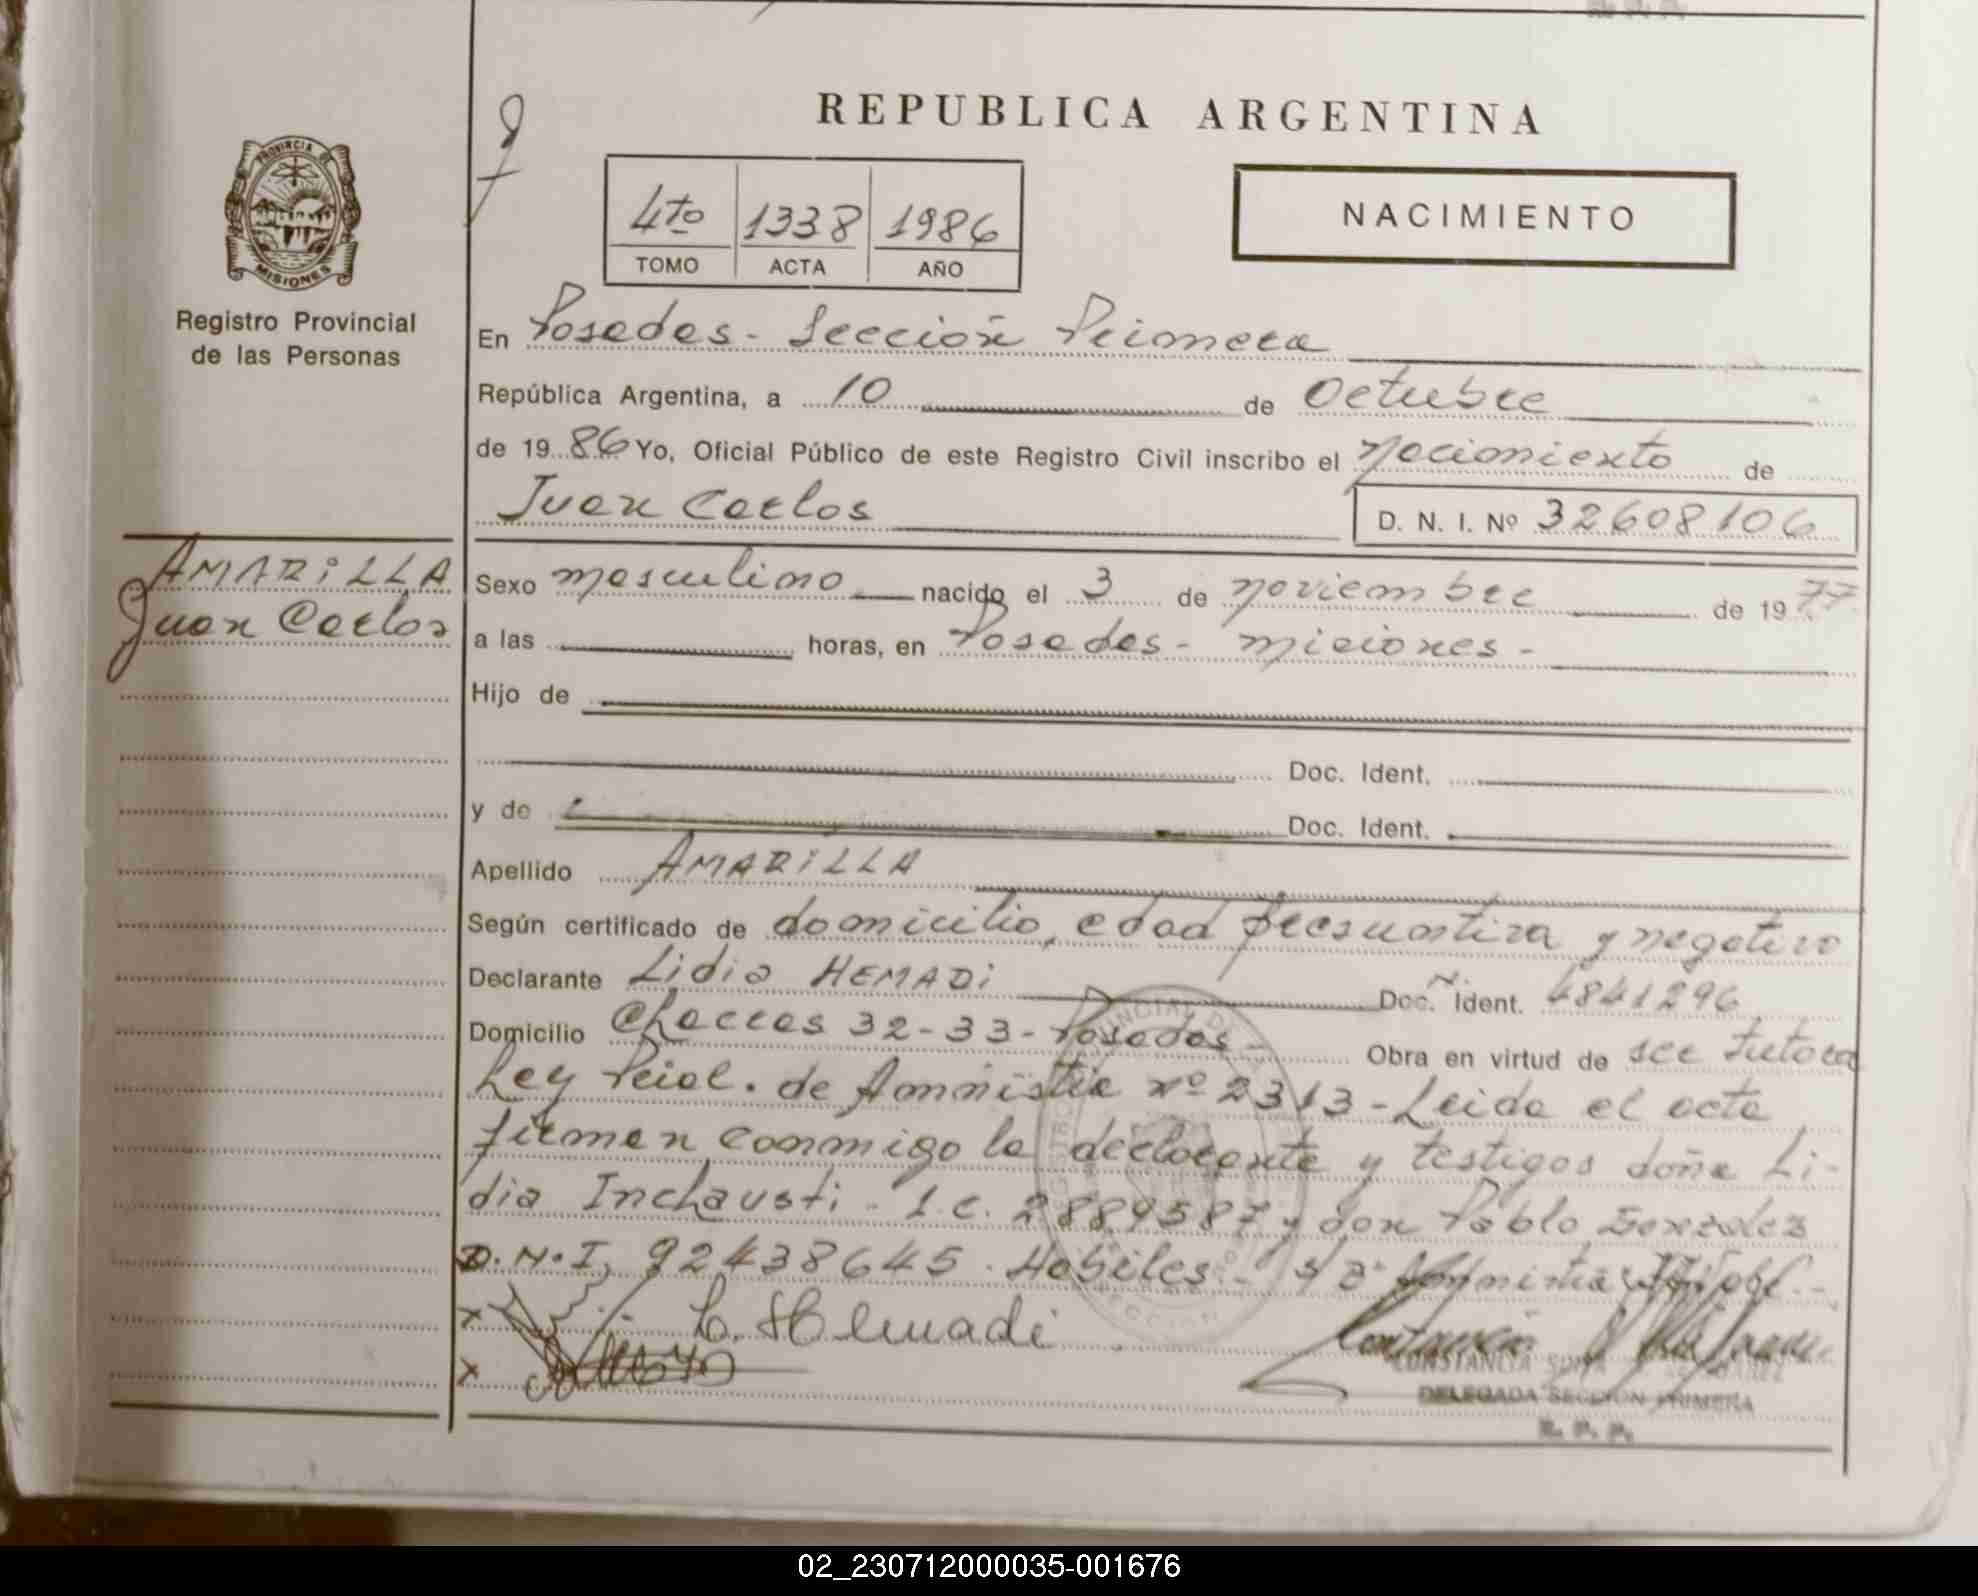 REPUBLICA ARGENTINA
PROVINCIA DE
MISIONES
Registro Provincial
de las Personas
4to 1338 1986
TOMO ACTA AÑO
NACIMIENTO
En Posadas - Sección Primera
República Argentina, a 10 de Octubre
de 19 86 Yo, Oficial Público de este Registro Civil inscribo el Nacimiento de
Juan Carlos D. N. I. Nº 32608106
AMARILLA
Juan Carlos
Sexo masculino nacido el 3 de noviembre de 19 77
a las horas, en Posadas - Miciones -
Hijo de
Doc. Ident.
y de Doc. Ident.
Apellido AMARILLA
Según certificado de domicilio, edad presuntiva y negativo
Declarante Lidia HEMADI Doc. Ident. 4841296
Domicilio Chacras 32-33 - Posadas - Obra en virtud de ser tutora
Ley Prial. de Amnistia nº 2313 - Leida el acta
firman conmigo la declarante y testigos doña Li-
dia Inchausti - L.C. 2889587 y don Pablo Gonzalez
D.N.I. 92438645. Habiles -
x L. Hemadi
x
CONSTANCIA
DELEGADA SECCION PRIMERA
R. P. P.
02_230712000035-001676